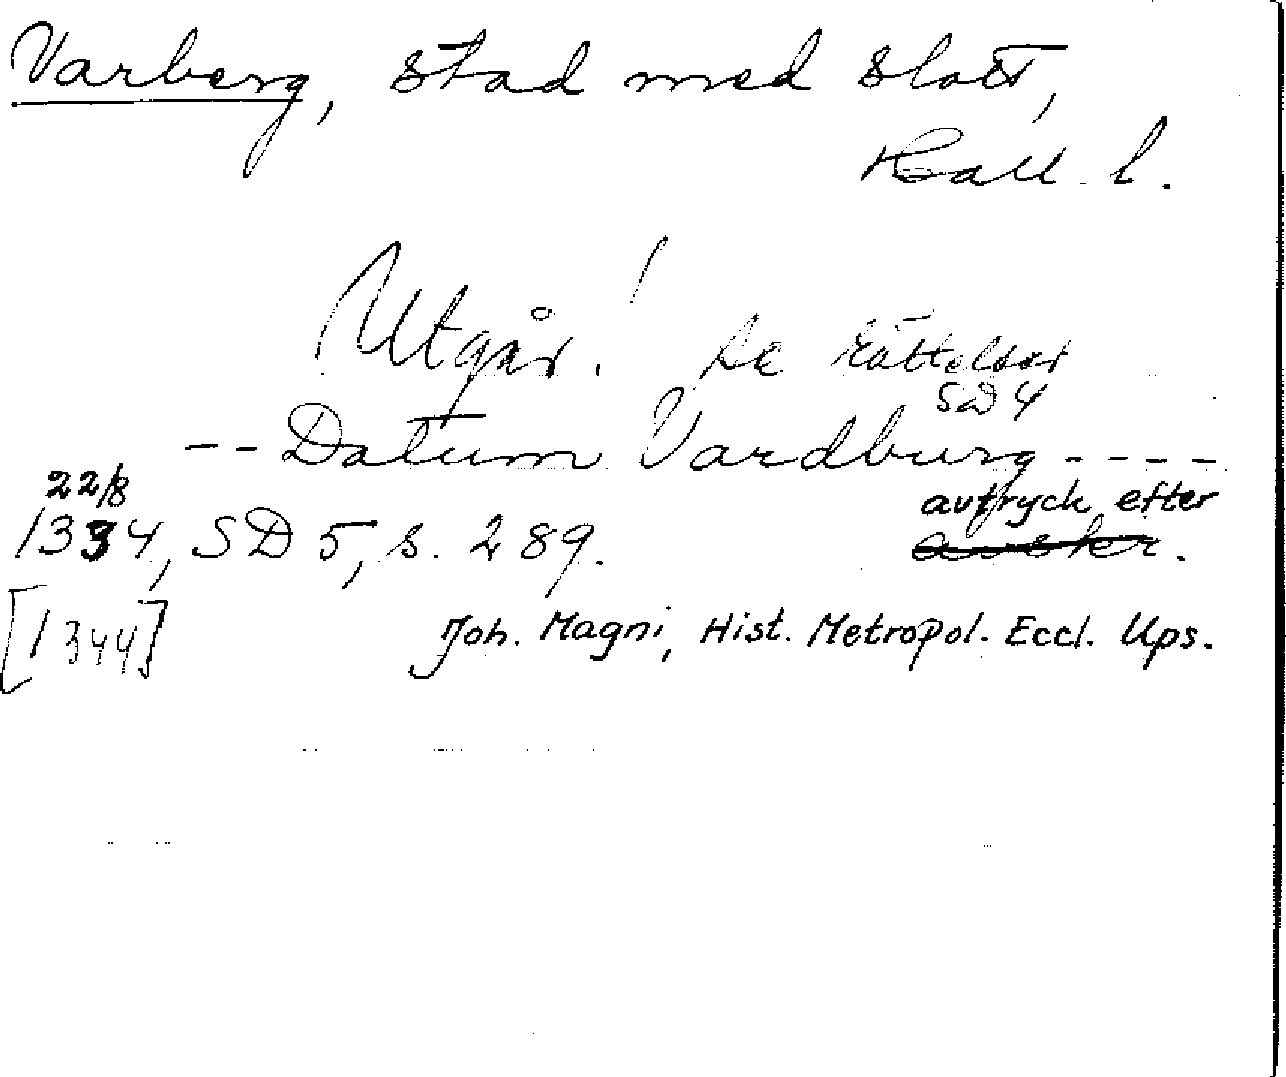 Varberg, stad med slott,
Hall. l.
Utgår! Se rättelser
SD 4
-- Datum Vardburg ----
22/8 avtryck efter
1334, SD 5, s. 289. avskr.
[1344] Joh. Magni, Hist. Metropol. Eccl. Ups.